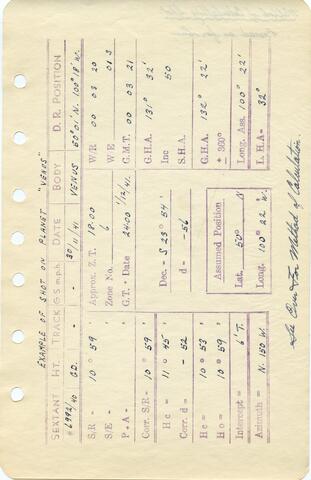 EXAMPLE OF SHOT ON PLANET "VENUS"
SEXTANT HT. TRACK G.S.mph DATE BODY D.R. POSITION
# 6992/40 GD. - - 30/11/41 VENUS 50°01'N. 100°18'W.
S.R - 10° 59' Approx. Z.T. 18-00 W/R 00 03 20
S/E - ' Zone No. 6 W E 01 S
P+A - ' G.T. + Date 2400 1/12/41. G.M.T. 00 03 21
Corr. S/R - 10° 59' G.H.A. 131° 32'
Hc = 11° 45' Dec. - S 23° 54' Inc 50
Corr. d = - 52 d = -56 S.H.A.
Hc = 10° 53' G.H.A. 132° 22'
Ho = 10° 59' Assumed Position ± 360°
Intercept = 6' T. Lat. 50° N Long. Ass. 100° 22'
Azimuth = N. 150 W. Long. 100° 22 W. L. HA = 32°
See Over For Method of Calculation.